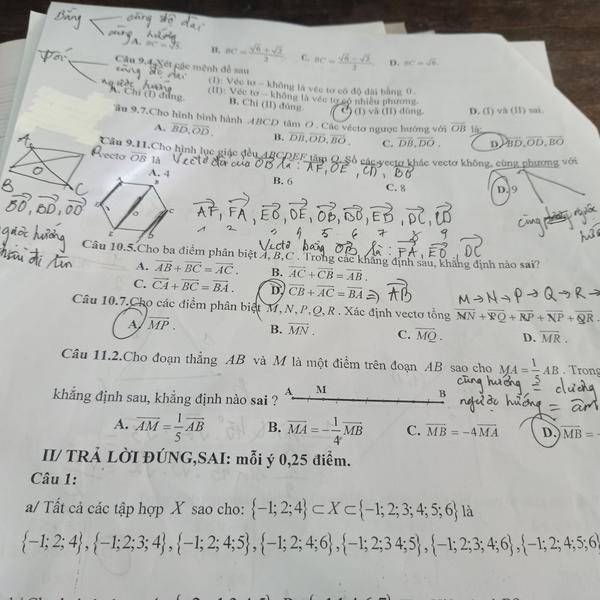 Bằng cùng độ dài
cùng hướng
B. BC = C. BC = D. BC = √6.
Đối cùng độ dài
ngược hướng
Câu 9.4. Xét các mệnh đề sau
(I): Véc tơ – không là véc tơ có độ dài bằng 0.
(II): Véc tơ – không là véc tơ có nhiều phương.
A. Chỉ (I) đúng. B. Chỉ (II) đúng. C. (I) và (II) đúng. D. (I) và (II) sai.
Câu 9.7. Cho hình bình hành ABCD tâm O. Các véctơ ngược hướng với OB là:
A. BD, OD. B. DB, OD, BO. C. DB, DO. D. BD, OD, BO
Câu 9.11. Cho hình lục giác đều ABCDEF tâm O. Số các vectơ khác vectơ không, cùng phương với
vectơ OB là
A. 4 B. 6 C. 8 D. 9
A
O
B C
BO, BD, OD
AF, FA, EO, OE, OB, BO, EB, DC, CD
1 2 3 4 5 6 7 8 9
Vectơ bằng OB là: FA, EO, DC
Câu 10.5. Cho ba điểm phân biệt A, B, C. Trong các khẳng định sau, khẳng định nào sai?
A. AB + BC = AC. B. AC + CB = AB.
C. CA + BC = BA. D. CB + AC = BA => AB
M → N → P → Q → R →
Câu 10.7. Cho các điểm phân biệt M, N, P, Q, R. Xác định vectơ tổng MN + PQ + RP + NP + QR.
A. MP. B. MN. C. MQ. D. MR.
Câu 11.2. Cho đoạn thẳng AB và M là một điểm trên đoạn AB sao cho MA = 1/5 AB. Trong
cùng hướng = dương
khẳng định sau, khẳng định nào sai ? A M B
ngược hướng = âm
A. AM = 1/5 AB B. MA = -1/4 MB C. MB = -4MA D. MB = -
II/ TRẢ LỜI ĐÚNG,SAI: mỗi ý 0,25 điểm.
Câu 1:
a/ Tất cả các tập hợp X sao cho: {-1;2;4} ⊂ X ⊂ {-1;2;3;4;5;6} là
{-1; 2; 4}, {-1;2;3; 4}, {-1; 2; 4;5}, {-1; 2; 4;6}, {-1; 2;3 4;5}, {-1; 2;3; 4;6}, {-1; 2; 4;5;6}